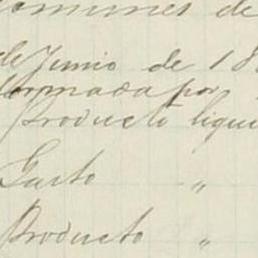 comunes de
de Junio de 18
formada por
Producto liqui
Gasto "
Producto "